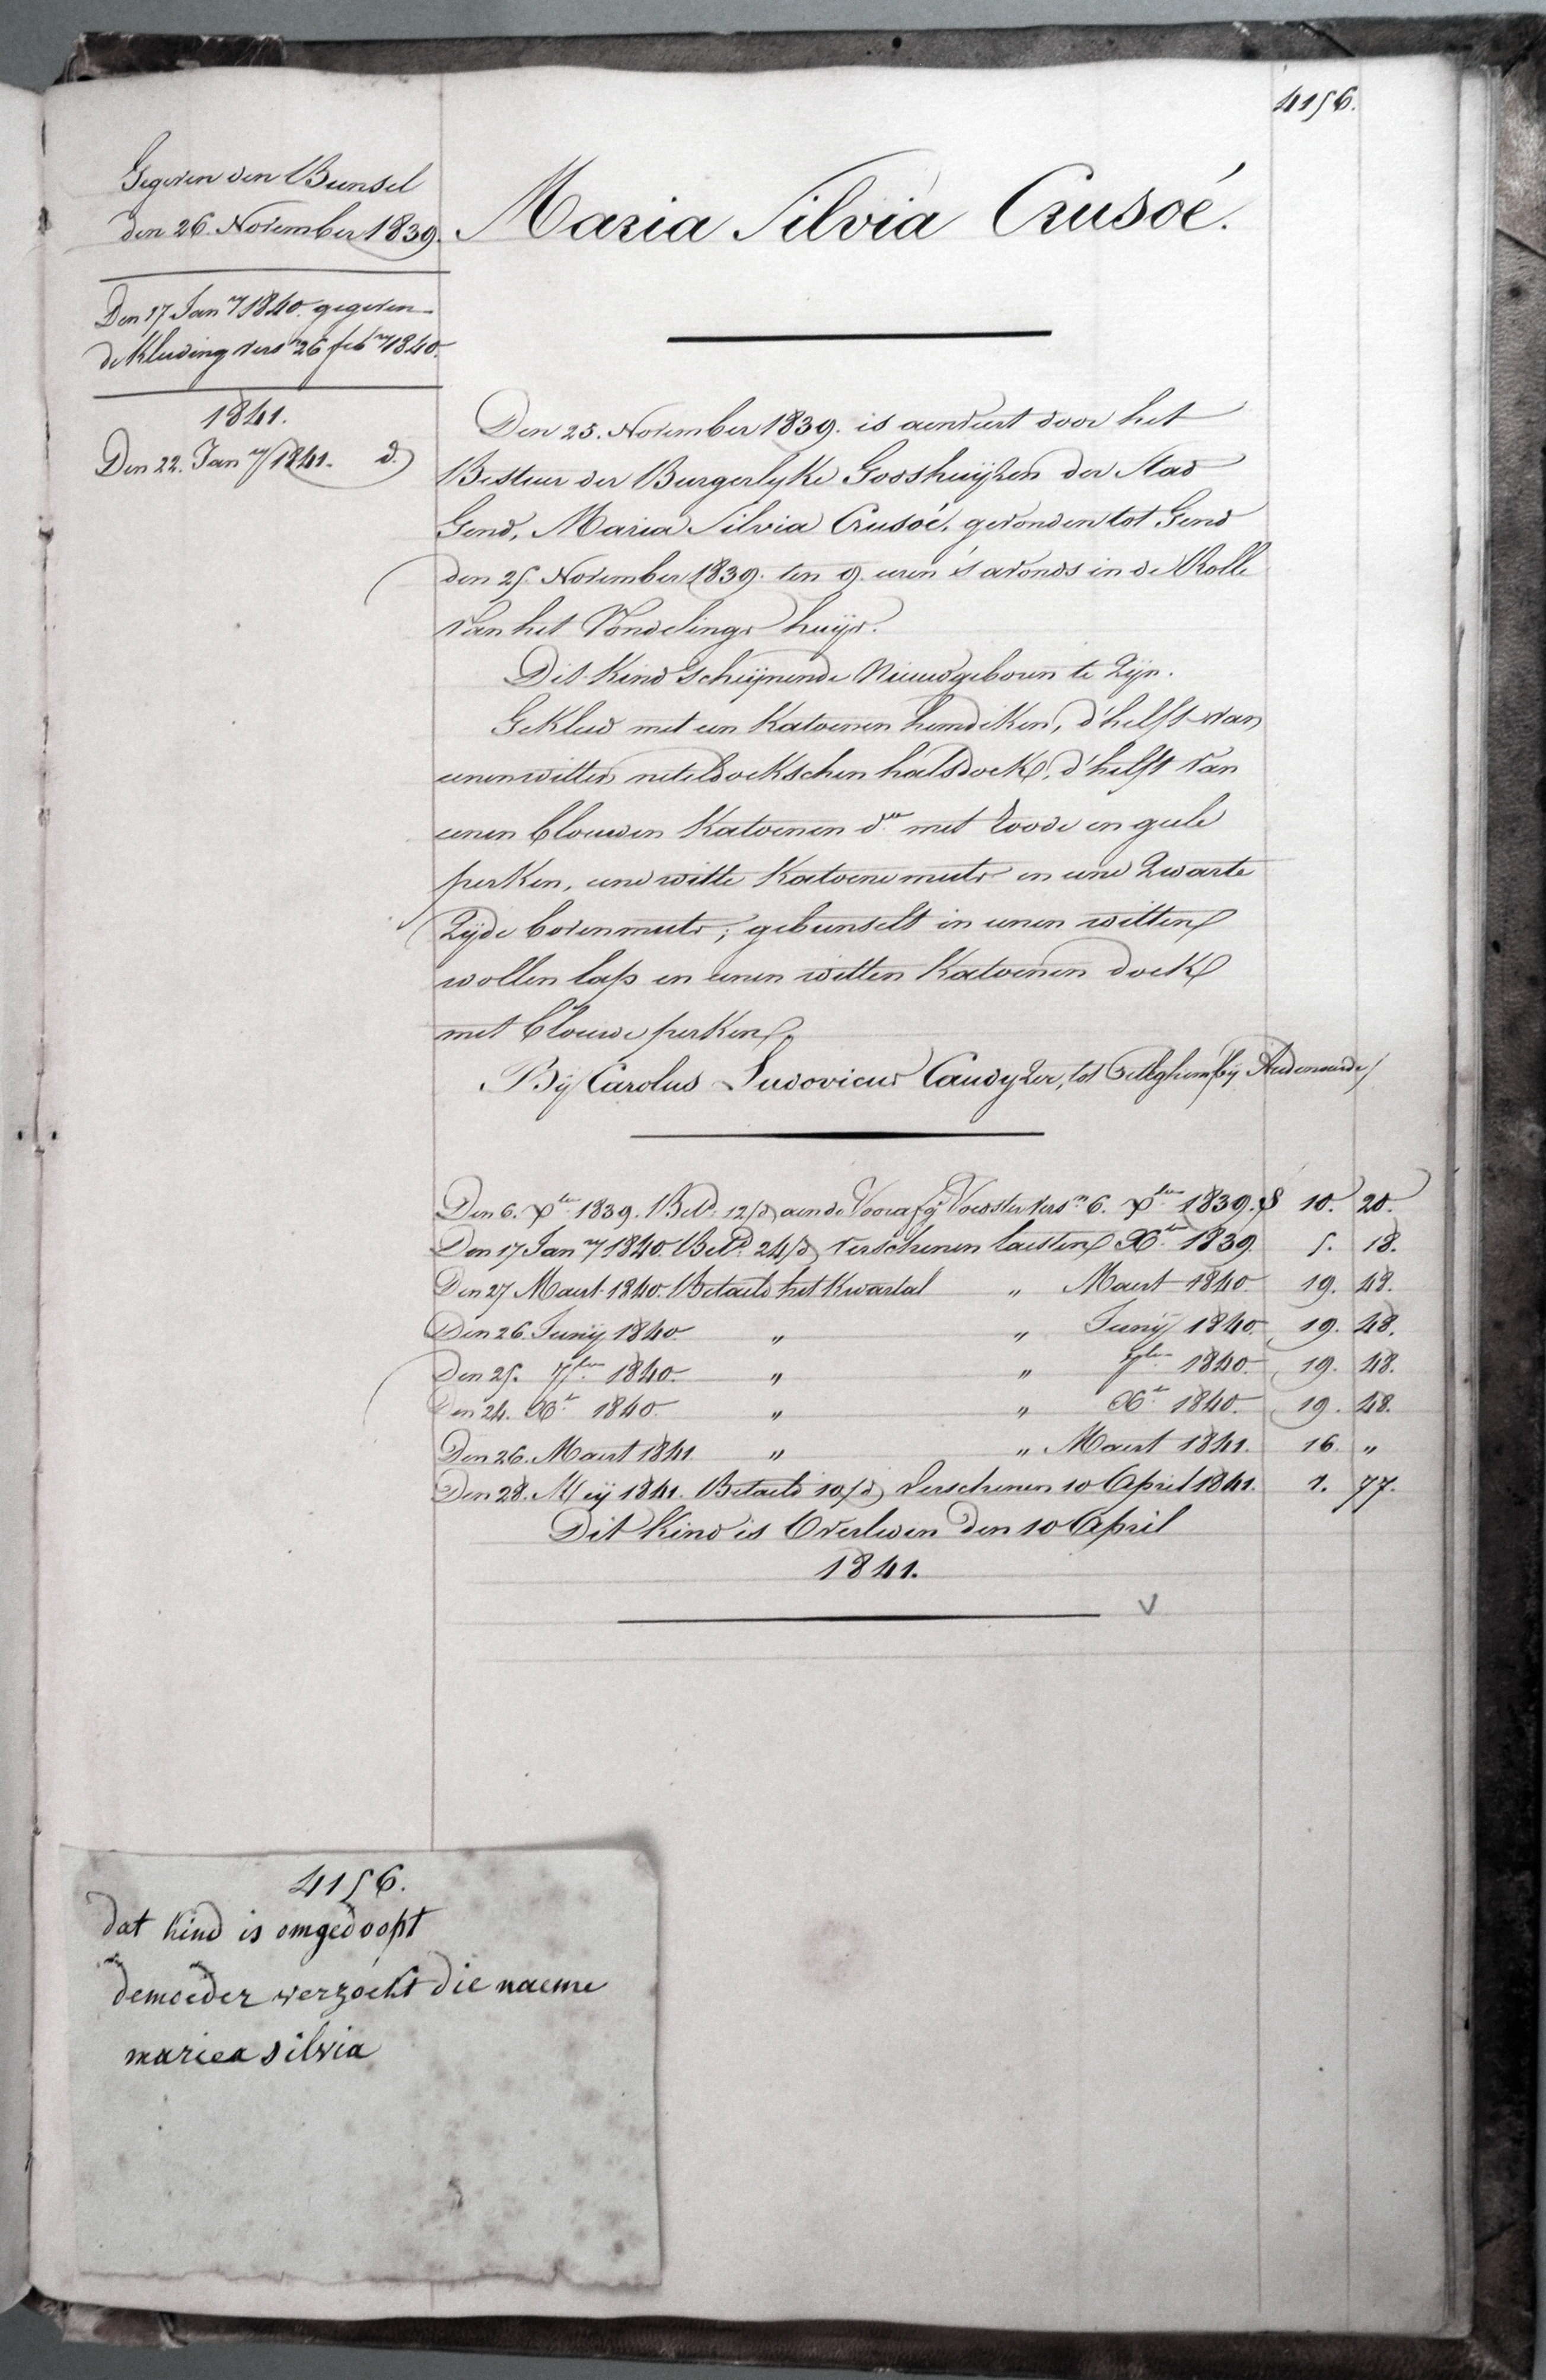 4156.
Gegeven den Bunsel
den 26. November 1839.
Den 17 Jan.ry 1840. gegeven
de Kleeding vers.n 26 feb.ry 1840.
1841.
Den 22. Jan.ry 1841. d.
Maria Silvia Crusoé.
Den 25. November 1839. is aenveert door het
Bestuer der Burgerlyke Godshuijzen der Stad
Gend, Maria Silvia Crusoé, gevonden tot Gend
den 25 November 1839. ten 9. uren 's avonds in de Rolle
van het Vondelings huijs.
Dit Kind Scheijnende Nieuwgeboren te Zijn.
Gekleed met een Katoenen hemdeken, d'helft van
eenen witten neteldoekschen halsdoek, d'helft van
eenen blauwen Katoenen d.o met roode en geele
perken, eene witte Katoene muts en eene Zwarte
Zijde bovenmuts; gebunselt in eenen witten
wollen lap en eenen witten Katoenen doek
met blauwe perken.
Bij Carolus Ludovicus Caudyzer, tot bij Audenaerde/
Den 6. Xber 1839. Bet.d 12/d aen de Voorafg. Voedster vers.n 6. Xber 1839. 10. 20.
Den 17 Jan.ry 1840. Bet.d 24/d verschenen laesten Xber 1839. 5. 18.
Den 27 Maert 1840. Betaeld het Kwartal " Maert 1840. 19. 48.
Den 26. Junij 1840. " " Junij 1840. 19. 48.
Den 25. 7ber 1840. " " 7ber 1840. 19. 48.
Den 24. Xber 1840. " " Xber 1840. 19. 48.
Den 26. Maert 1841. " " Maert 1841. 16. "
Den 28. Meij 1841. Betaeld 10/d verschenen 10 April 1841. 1. 77.
Dit Kind is Overleden den 10 April
1841.
4156.
dat kind is omgedoopt
demoeder verzoekt die naeme
mariea silvia